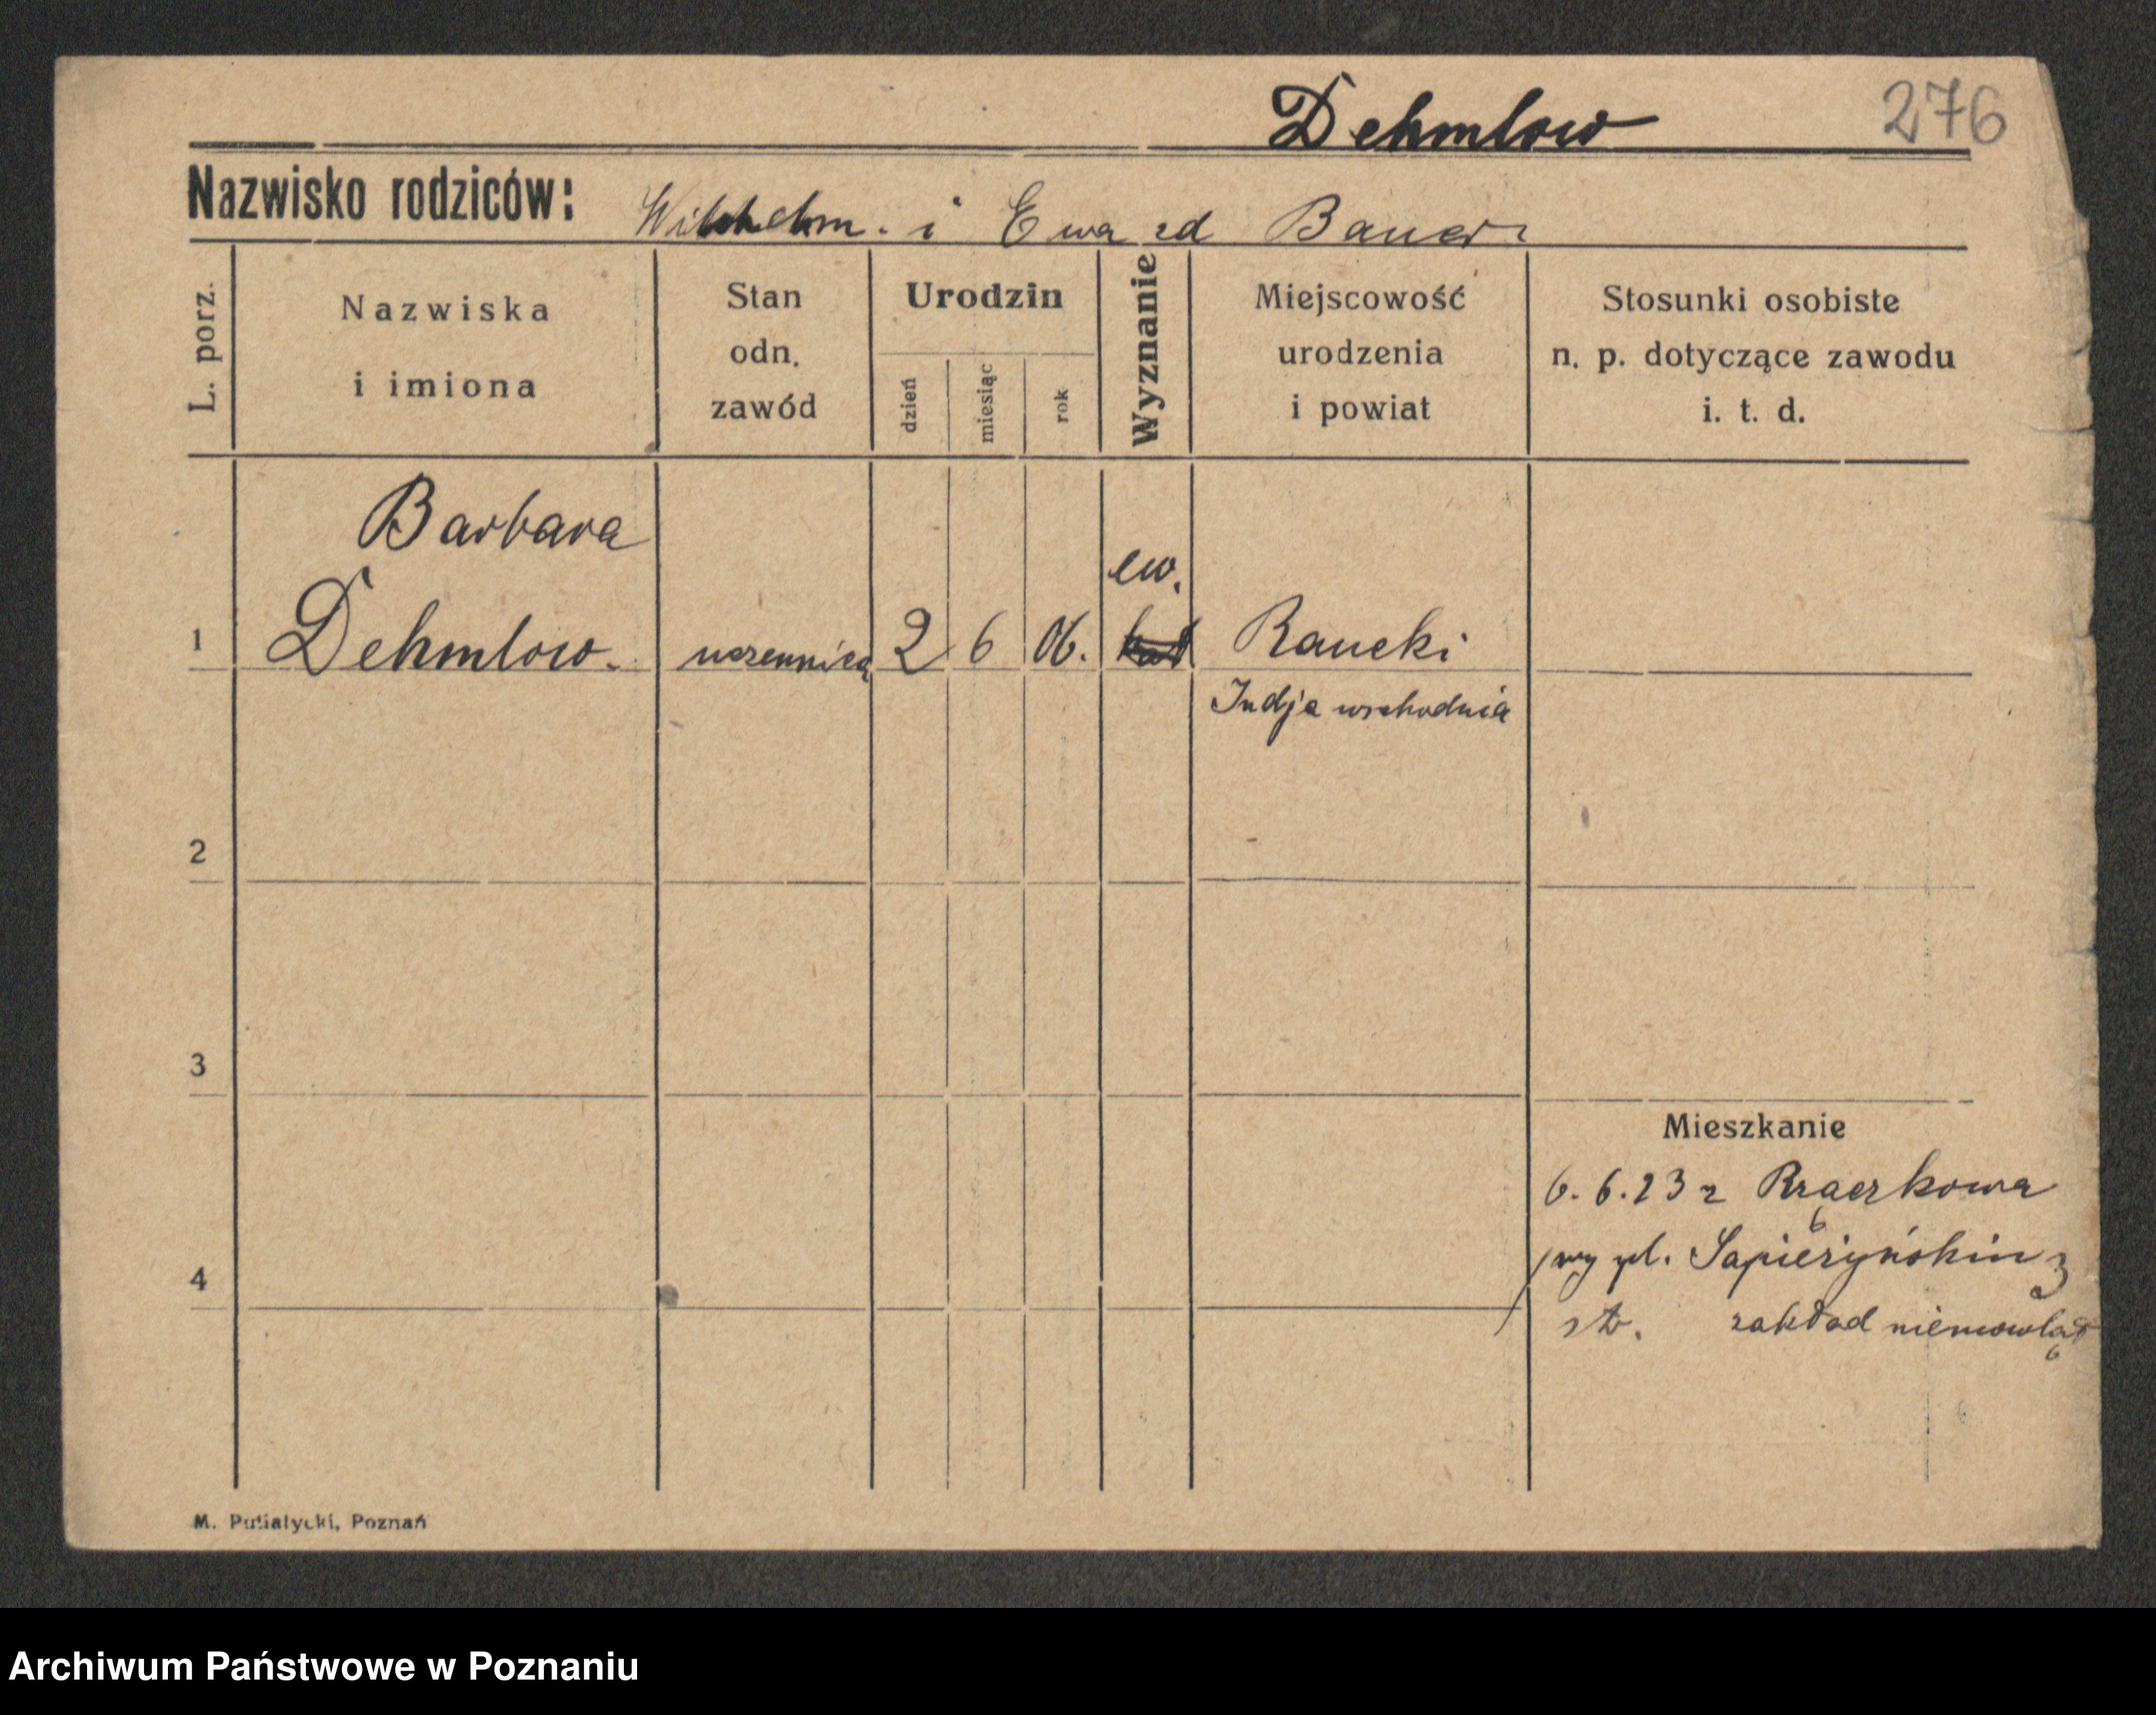 Dehmlow 276
Nazwisko rodziców: Wilhelm. i Ewa zd Bauer
L. porz.
Nazwiska
i imiona
Stan
odn.
zawód
Urodzin
dzień
miesiąc
rok
Wyznanie
Miejscowość
urodzenia
i powiat
Stosunki osobiste
n. p. dotyczące zawodu
i. t. d.
Barbara
ew.
1 Dehmlow. uczennica 2 6 06. kat Raucki
Indja wschodnia
2
3
Mieszkanie
6. 6. 23 z Rzączkowa
pl. Sapieżyński 3
4
zakład niemowląt
M. Putiatycki, Poznań
Archiwum Państwowe w Poznaniu